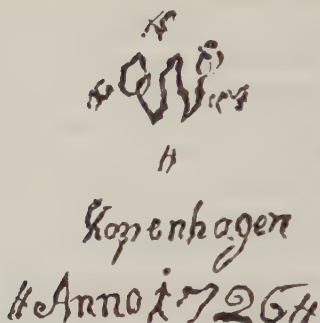 W
H
Kopenhagen
H Anno 1726 H